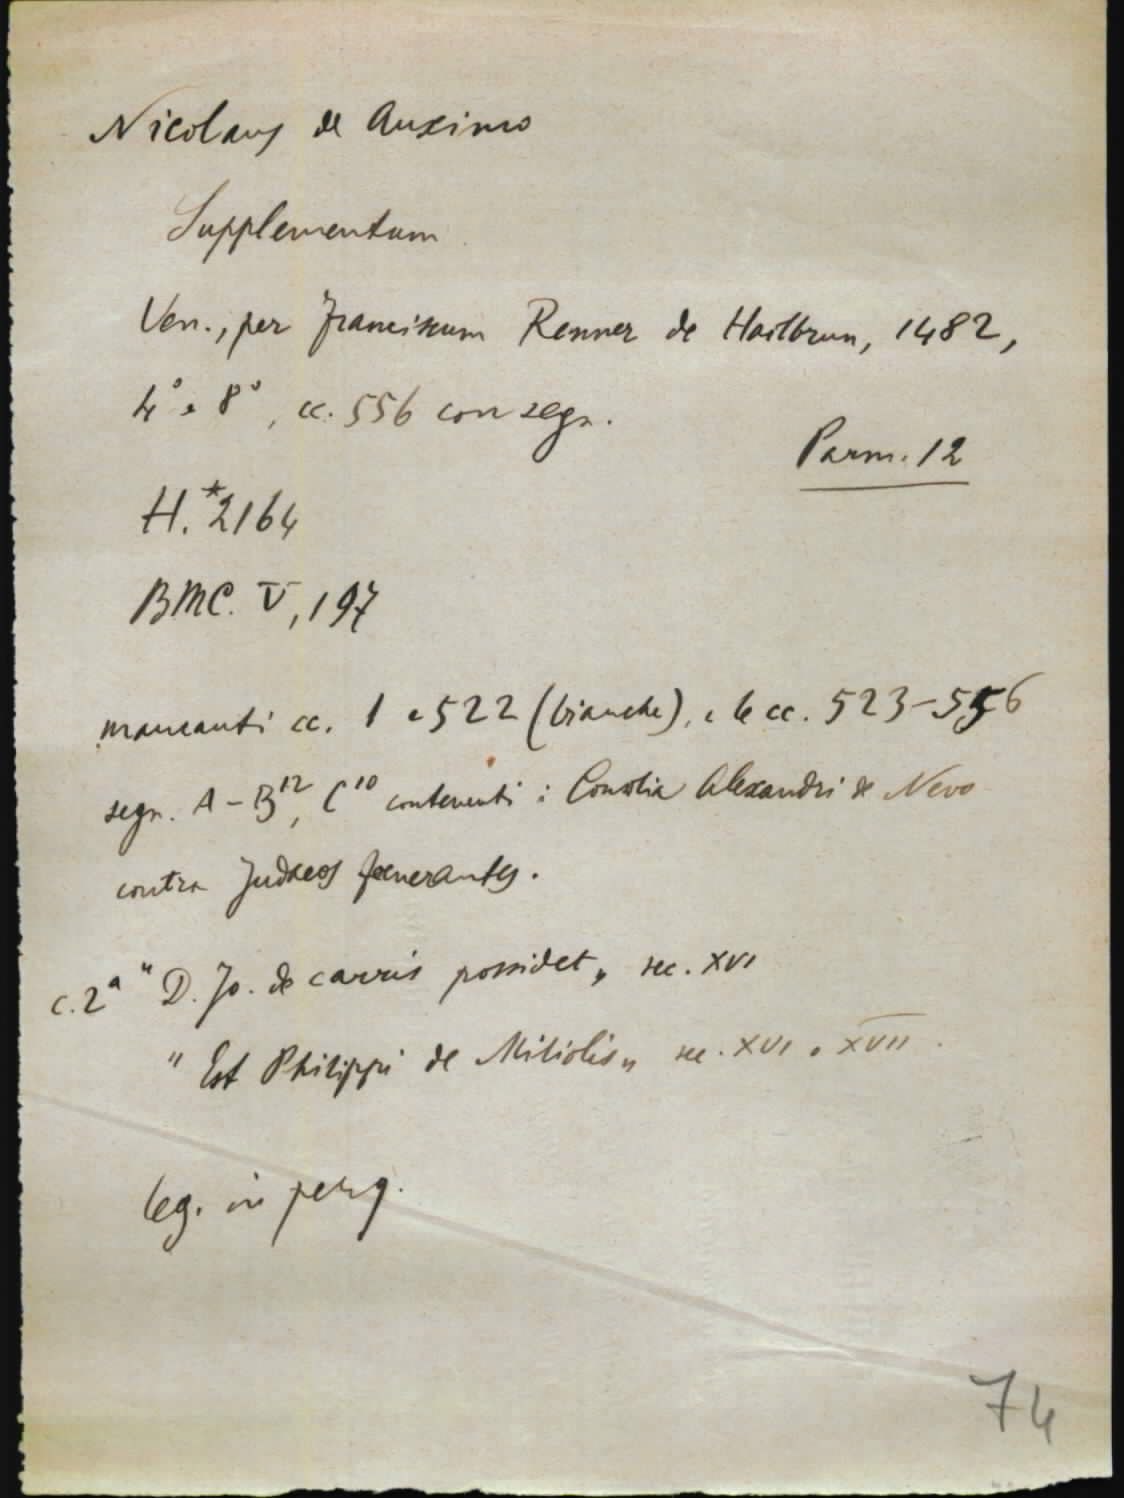 Nicolaus de Auximo
Supplementum
Ven., per Franciscum Renner de Hailbrun, 1482,
4° e 8°, cc. 556 con segn.
Parm. 12
H.*2164
BMC. V, 197
mancanti cc. 1 e 522 (bianche), e le cc. 523-556
segn. A-B¹², C¹⁰ contenenti: Consilia Alexandri de Nevo
contra Judaeos foenerantes.
c. 2ª "D. Jo. de carris possidet„ sec. XVI
"Est Philippi de Mitiolis„ sec. XVI o XVII.
leg. in perg.
74